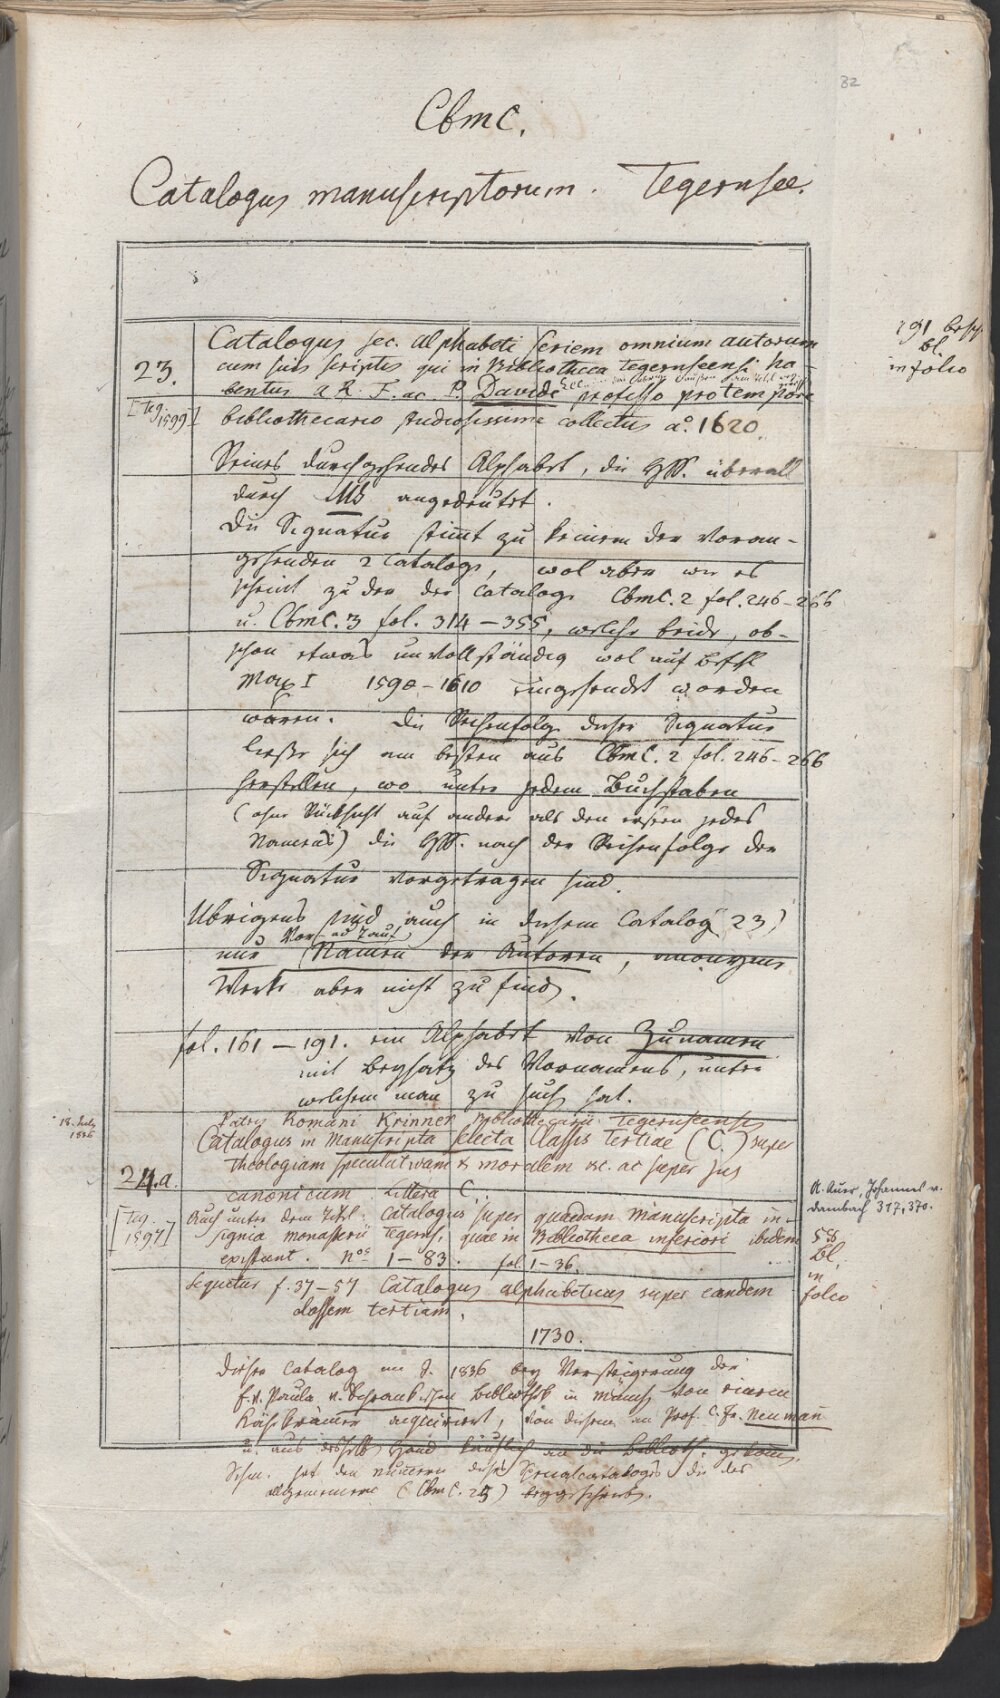 82
Cbmc.
Catalogus manuscriptorum. Tegernsee.
Catalogus sec. alphabeti seriem omnium autorum
23. cum suis scriptis qui in Bibliotheca tegernseensi ha-
bentur a R. F. ac P. Davide professo pro tempore
[Teg. 1599] bibliothecario studiosissime collectus ao. 1620.
191 besch.
Bl.
in folio
Reines durchgehendes Alphabet, die HSS. überall
durch MS angedeutet.
Die Signatur stimmt zu keinem der voran-
gehenden 2 Cataloge, wol aber wie es
scheint zu der der Cataloge Cbmc. 2 fol. 246-266
u. Cbmc. 3 fol. 314-355, welche beide, ob-
schon etwas unvollständig wol auf Befehl
Max I 1598-1610 eingesendet worden
wären. Die Reihenfolge dieser Signatur
ließe sich am besten aus Cbmc. 2 fol. 246-266
herstellen, wo unter jedem Buchstaben
(ohne Rücksicht auf andere als den ersten jedes
Namens) die HSS. nach der Reihenfolge der
Signatur vorgetragen sind.
Übrigens sind auch in diesem Catalog (23)
nur Vor- Namen der Autoren, anonyme
Werke aber nicht zu finden.
fol. 161-191. ein Alphabet von Zunamen
mit Beysatz des Vornamens, unter
welchem man zu suchen hat.
18. July
1836
Patris Romani Krinner Bibliothecarii Tegernseensis
Catalogus in Manuscripta selecta Classis tertiae (C.) super
24.a. theologiam speculativam & moralem &c. ac super jus
canonicum Littera C.
A. Auer, Johannes v.
Dambach 317, 370.
[Teg. 1597] Auch unter dem Titel: Catalogus super quaedam manuscripta in-
signia monasterii Tegerns, quae in Bibliotheca inferiori ibidem
existunt. Nos 1-83. fol 1-36.
58
Bl.
in
folio
Sequitur f. 37-57 Catalogus alphabeticus super eandem
classem tertiam.
1730.
Dieser Catalog im J. 1836 bey Versteigerung der
F. v. Paula v. Schrank'schen Bibliothek in München von einem
Käsekrämer acquirirt, von diesem an Prof. C. Fr. Neumann
u. aus dessen Hand käuflich an die Biblioth. gekom̄en.
Schm. hat den Nummern dieses Specialcatalogs die des
allgemeinen (Cbmc. 25) beygeschrieben.